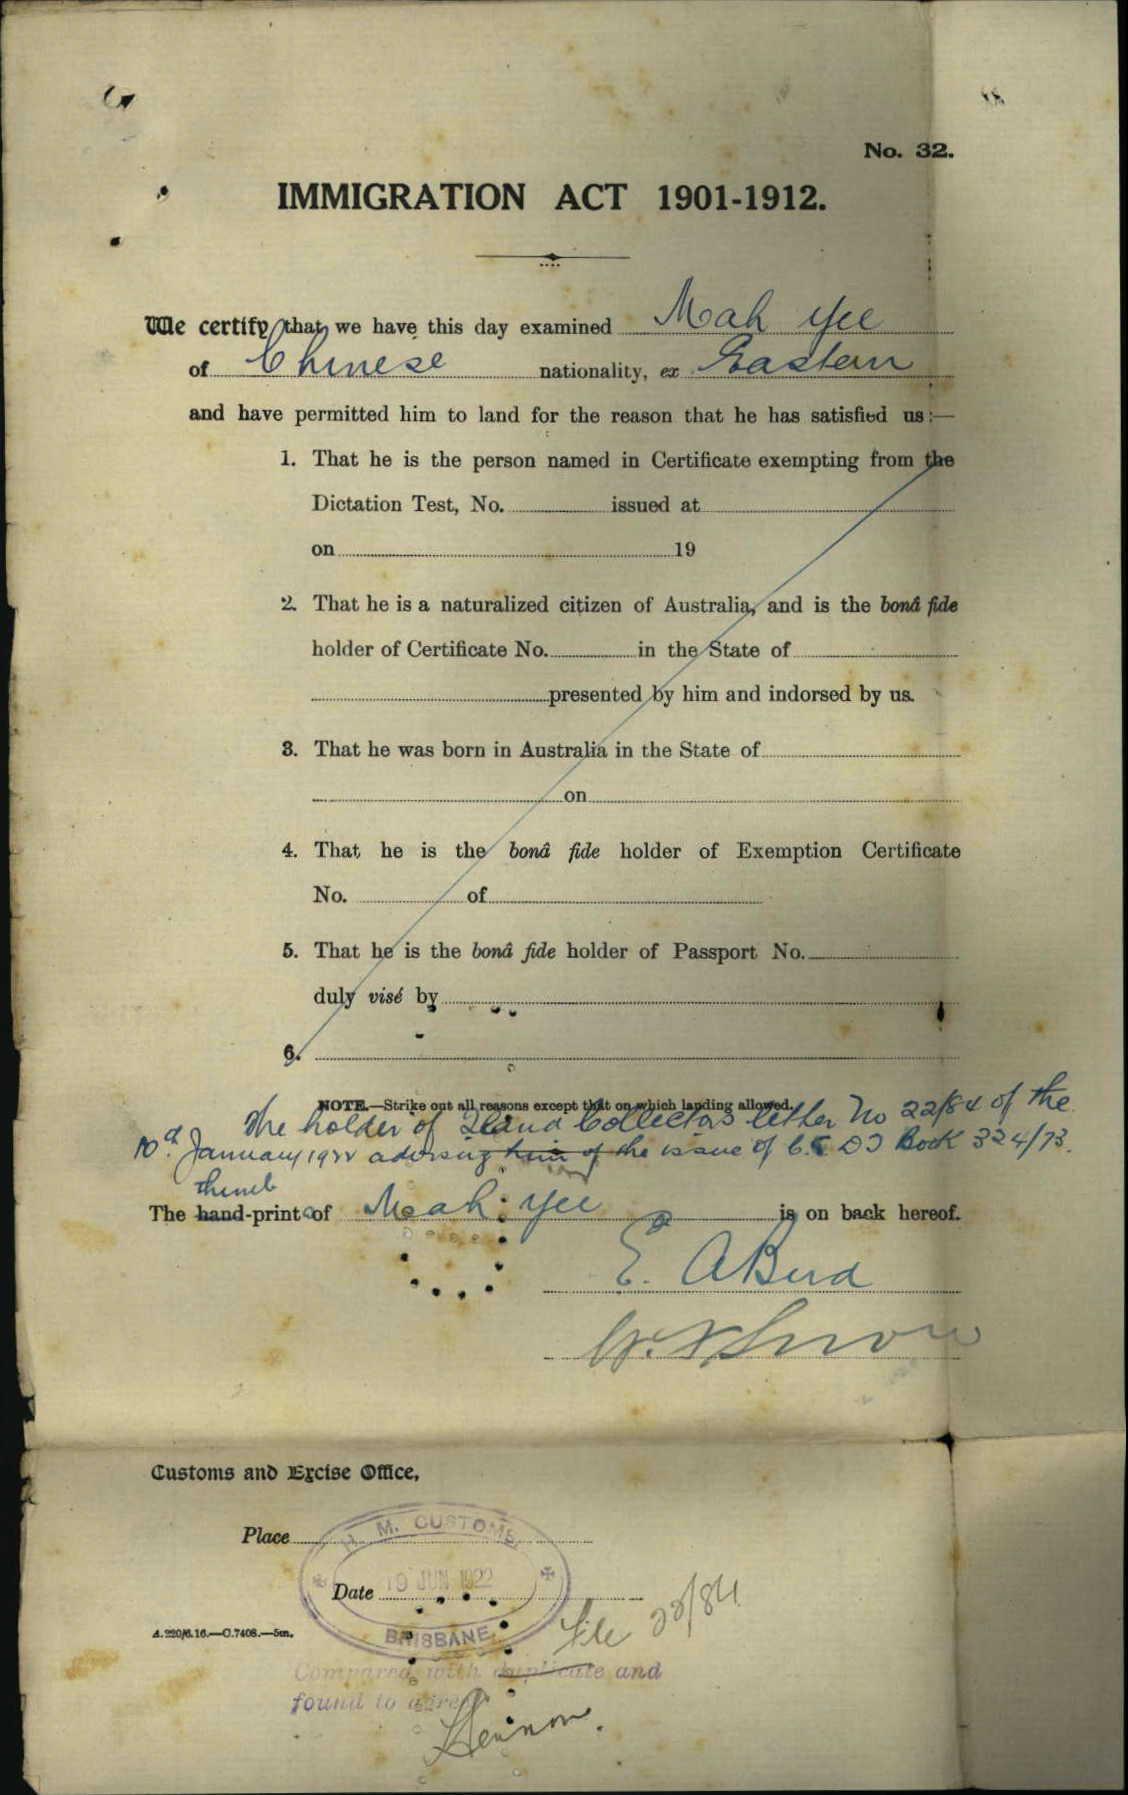 No. 32.
IMMIGRATION ACT 1901-1912.
We certify that we have this day examined Mah Yee
of Chinese nationality, ex Eastern
and have permitted him to land for the reason that he has satisfied us:—
1. That he is the person named in Certificate exempting from the
Dictation Test, No. issued at
on 19
2. That he is a naturalized citizen of Australia, and is the bonâ fide
holder of Certificate No. in the State of
presented by him and indorsed by us.
3. That he was born in Australia in the State of
on
4. That he is the bonâ fide holder of Exemption Certificate
No. of
5. That he is the bonâ fide holder of Passport No.
duly visé by
6.
NOTE.—Strike out all reasons except that on which landing allowed.
The holder of Collectors letter No 22/84 of the
10th January 1922 advising him of the issue of C.E.D.T Book 324/73.
thumb
The hand-print of Mah Yee is on back hereof.
E. A Bird
W.
Customs and Excise Office,
Place
H. M. CUSTOMS
Date 19 JUN 1922
A.220/6.16.—C.7408.—5m.
BRISBANE
File 22/84
Compared with duplicate and
found to agree